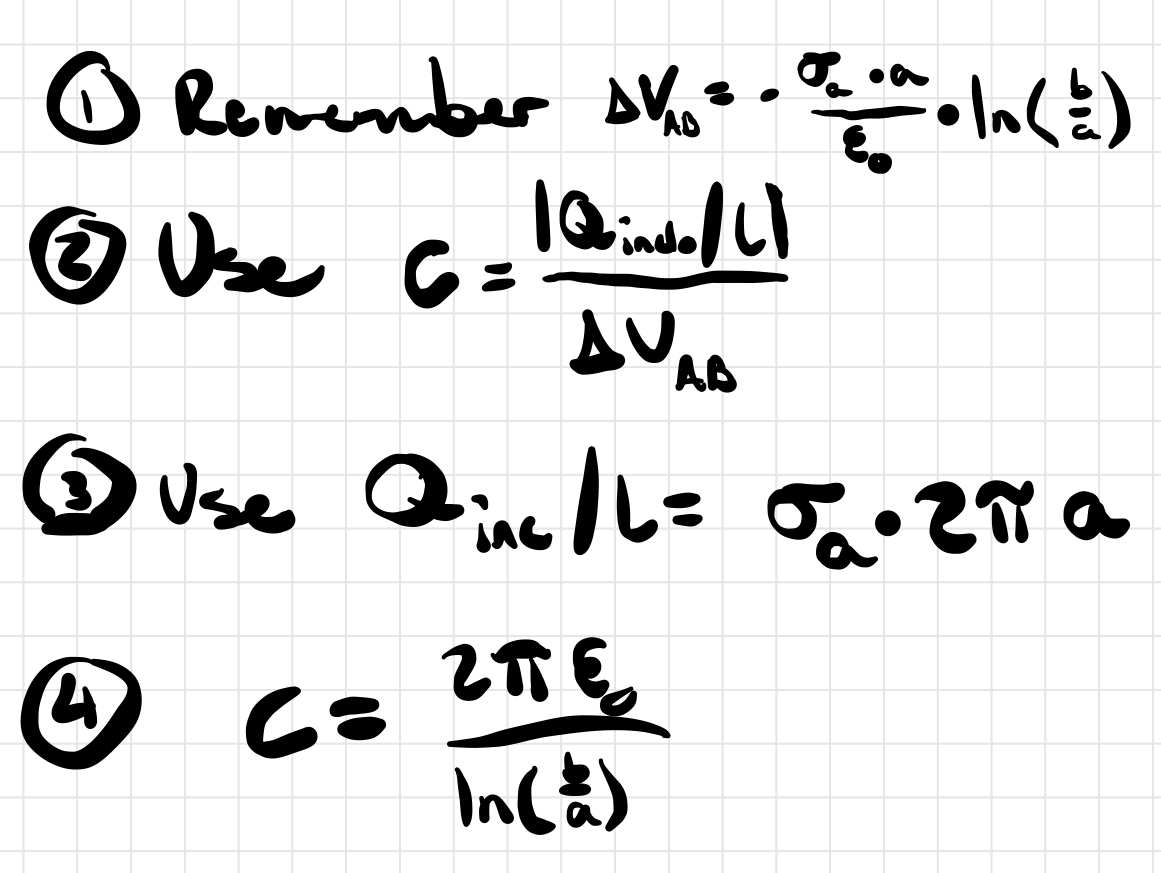 ① Remember ΔV_AB = - (σ_a · a)/ε_0 · ln(b/a)
② Use C = |Q_indo/L| / ΔV_AB
③ Use Q_inc/L = σ_a · 2π a
④ C = 2π ε_0 / ln(b/a)